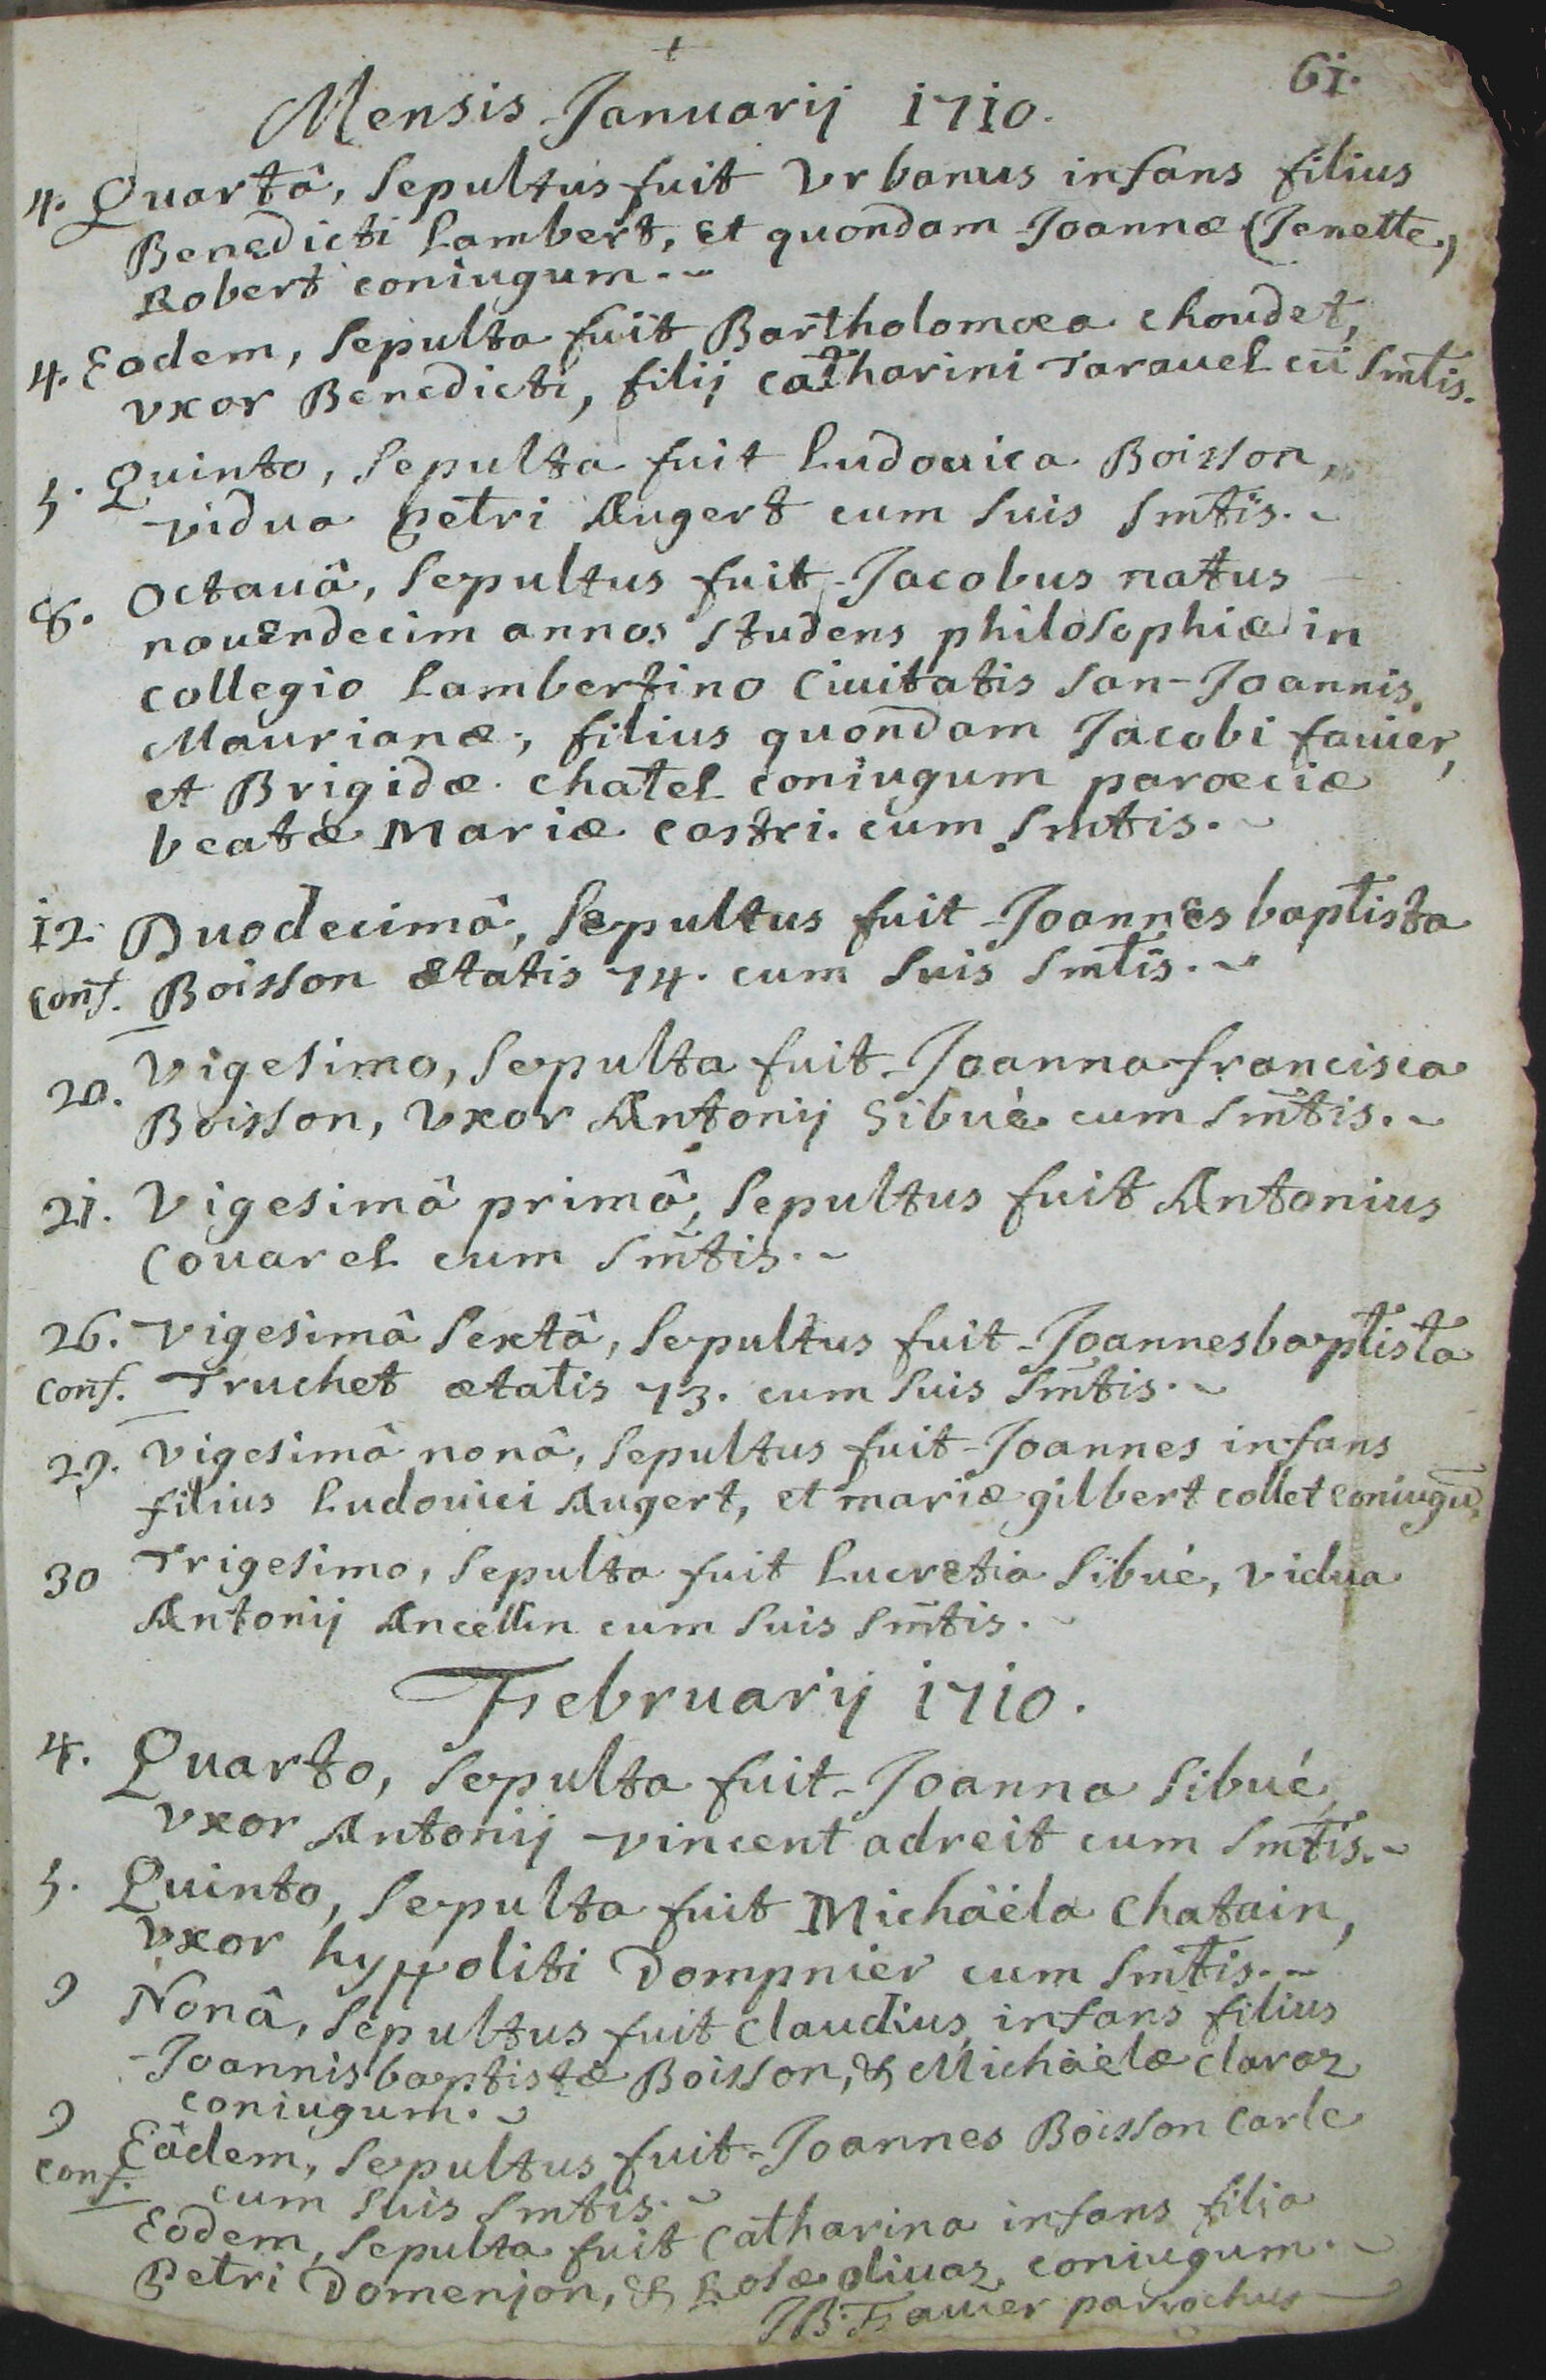 +
61.
Mensis Januarij 1710.
4. Quartâ, Sepultus fuit Vrbanus infans filius
Benedicti Lambert, et quondam Joannæ (Jenette)
Robert coniugum.~
4. Eodem, Sepulta fuit Bartholomæa choudet,
vxor Benedicti, filij catharini Tarauel cū Smtis.
5. Quinto, Sepulta fuit Ludouica Boisson,
vidua petri Augert cum suis Smtis.~
8. Octauâ, Sepultus fuit Jacobus natus
nouendecim annos Studens philosophiæ in
collegio Lambertino Ciuitatis San-Joannis
Maurianæ, filius quondam Jacobi fauier,
et Brigidæ chatel coniugum parœciæ
beatæ Mariæ castri. cum Smtis.~
12. Duodecimâ, Sepultus fuit Joannes baptista
conf. Boisson ætatis 74. cum suis Smtis.~
20. Vigesimo, Sepulta fuit Joanna francisca
Boisson, Vxor Antonij Sibué cum Smtis.~
21. Vigesimâ primâ, Sepultus fuit Antonius
Couarel cum Smtis.~
26. Vigesimâ Sextâ, Sepultus fuit Joannesbaptista
conf. Truchet ætatis 73. cum suis Smtis.~
29. Vigesimâ nonâ, Sepultus fuit Joannes infans
filius Ludouici Augert, et mariæ gilbert collet coniugū,
30 Trigesimo, Sepulta fuit Lucretia Sibué, vidua
Antonij Ancellin cum suis Smtis.~
Februarij 1710.
4. Quarto, Sepulta fuit Joanna Sibué,
vxor Antonij vincent adreit cum Smtis.~
5. Quinto, Sepulta fuit Michäéla Chatain,
vxor hyppoliti Dompnier cum Smtis.~
9 Nonâ, Sepultus fuit Claudius, infans filius
Joannisbaptistæ Boisson, & Michäelæ claraz
coniugum.~
9 Eâdem, Sepultus fuit Joannes Boisson Carle
conf. cum suis Smtis.~
Eodem, Sepulta fuit Catharina infans filia
Petri Domenjon, & Rosæ oliuaz coniugum.~
JB. Fauier parrochus